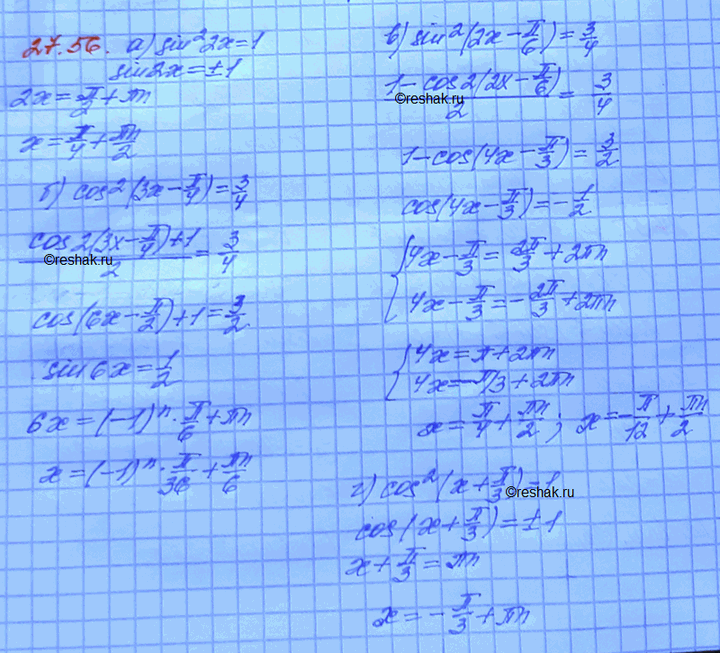 27.56. а) sin²2x=1
sin2x=±1
2x=π/2+πn
x=π/4+πn/2
б) cos²(3x-π/4)=3/4
(cos2(3x-π/4)+1)/2=3/4
©reshak.ru
cos(6x-π/2)+1=3/2
sin6x=1/2
6x=(-1)ⁿ·π/6+πn
x=(-1)ⁿ·π/36+πn/6
в) sin²(2x-π/6)=3/4
(1-cos2(2x-π/6))/2=3/4
©reshak.ru
1-cos(4x-π/3)=3/2
cos(4x-π/3)=-1/2
4x-π/3=2π/3+2πn
4x-π/3=-2π/3+2πn
4x=π+2πn
4x=-π/3+2πn
x=π/4+πn/2; x=-π/12+πn/2
г) cos²(x+π/3)=1
©reshak.ru
cos(x+π/3)=±1
x+π/3=πn
x=-π/3+πn